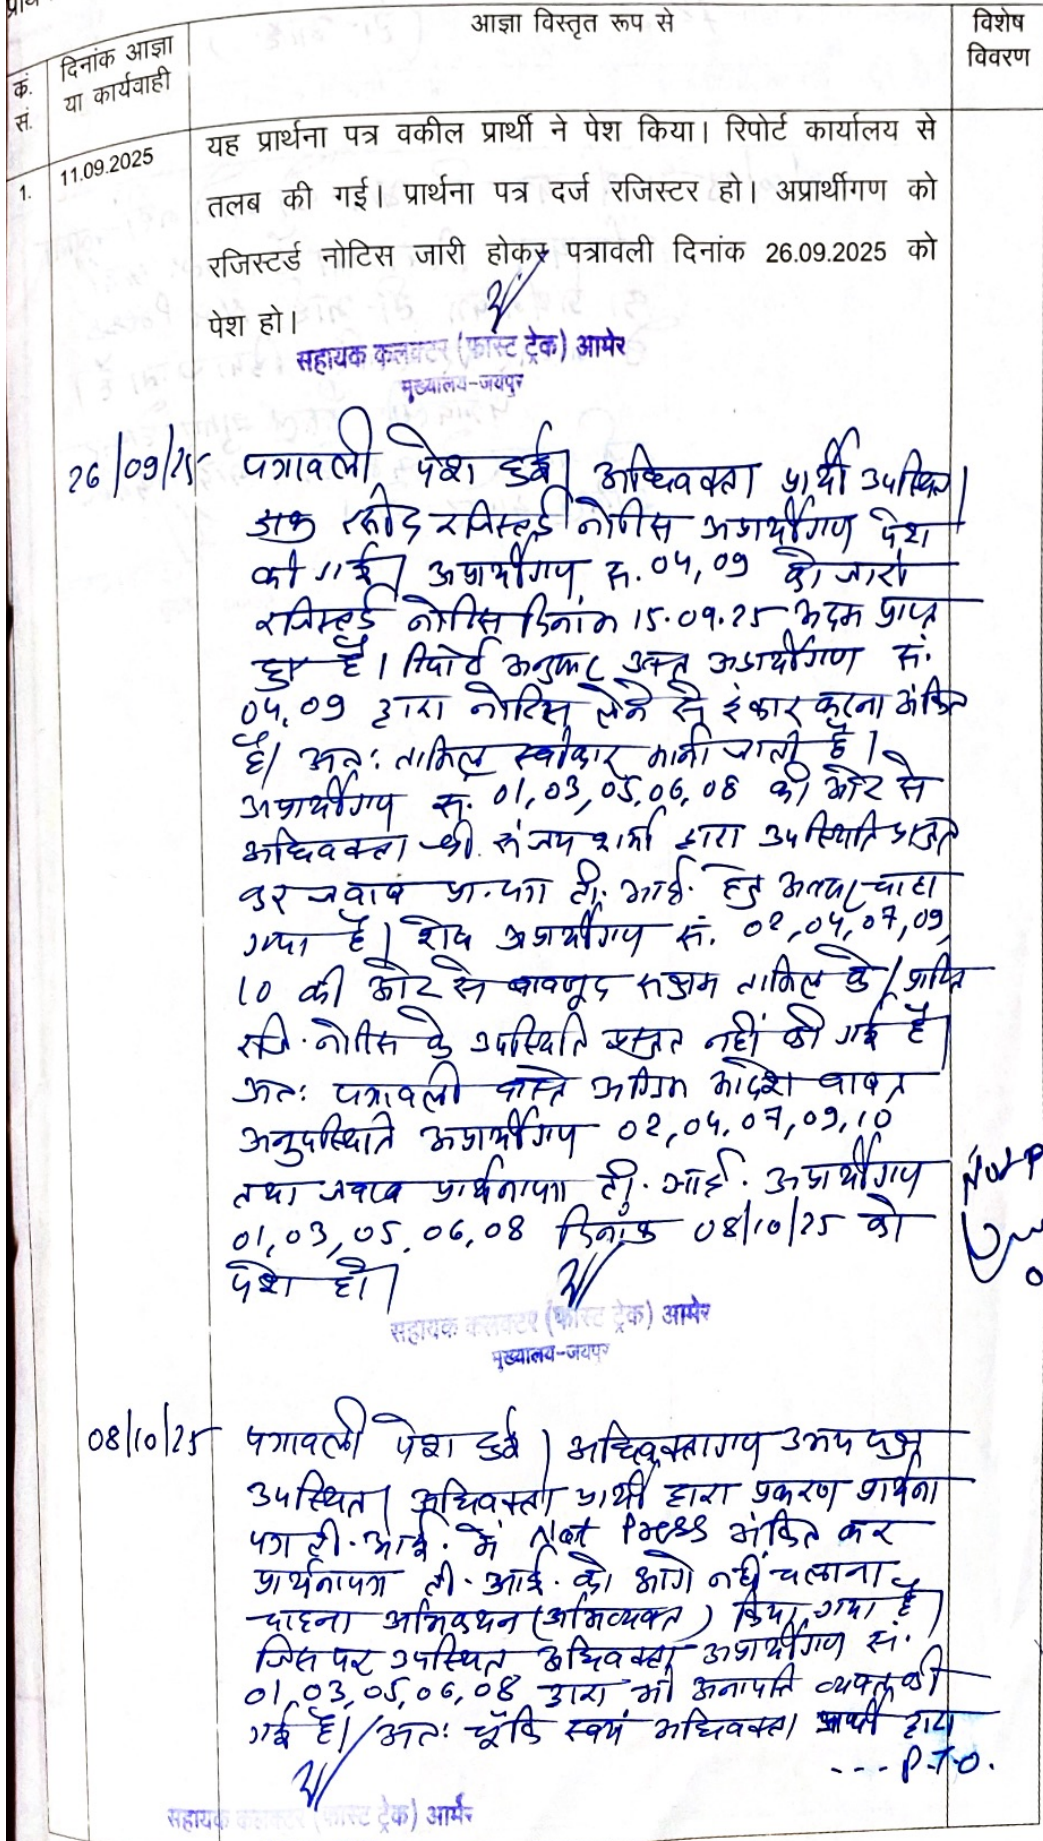 आज्ञा विस्तृत रूप से
विशेष
विवरण
दिनांक आज्ञा
या कार्यवाही
क.
सं.
1.
11.09.2025
यह प्रार्थना पत्र वकील प्रार्थी ने पेश किया। रिपोर्ट कार्यालय से
तलब की गई। प्रार्थना पत्र दर्ज रजिस्टर हो। अप्रार्थीगण को
रजिस्टर्ड नोटिस जारी होकर पत्रावली दिनांक 26.09.2025 को
पेश हो।
सहायक कलक्टर (फास्ट ट्रेक) आमेर
मुख्यालय-जयपुर
26/09/25 पत्रावली पेश हुई। अधिवक्ता प्रार्थी उपस्थित।
डाक रसीद रजिस्टर्ड नोटिस अप्रार्थीगण पेश
की गई। अप्रार्थीगण सं. 04, 09 को जारी
रजिस्टर्ड नोटिस दिनांक 15.09.25 अदम प्राप्त
हुए है। रिपोर्ट अनुसार उक्त अप्रार्थीगण सं.
04, 09 द्वारा नोटिस लेने से इंकार करना अंकित
है। अतः तामिल स्वीकार मानी जाती है।
अप्रार्थीगण सं. 01, 03, 05, 06, 08 की ओर से
अधिवक्ता श्री संजय शर्मा द्वारा उपस्थिति प्रस्तुत
कर जवाब प्रा.पत्र टी. आई. हेतु अवसर चाहा
गया है। शेष अप्रार्थीगण सं. 02, 04, 07, 09,
10 की ओर से बावजूद सक्षम तामिल के / प्राप्ति
रजि. नोटिस के उपस्थिति प्रस्तुत नहीं की गई है
अतः पत्रावली वास्ते अग्रिम आदेश बाबत
अनुपस्थिति अप्रार्थीगण 02, 04, 07, 09, 10
तथा जवाब प्रार्थनापत्र टी. आई. अप्रार्थीगण
01, 03, 05, 06, 08 दिनांक 08/10/25 को
पेश हो।
सहायक कलक्टर (फास्ट ट्रेक) आमेर
मुख्यालय-जयपुर
08/10/25 पत्रावली पेश हुई। अधिवक्तागण उभय पक्ष
उपस्थित। अधिवक्ता प्रार्थी द्वारा प्रकरण प्रार्थना
पत्र टी. आई. में Not Press अंकित कर
प्रार्थनापत्र टी. आई. को आगे नहीं चलाना
चाहना अभिकथन (अभिव्यक्त) किया गया है।
जिस पर उपस्थित अधिवक्ता अप्रार्थीगण सं.
01, 03, 05, 06, 08 द्वारा भी अनापत्ति व्यक्त की
गई है। अतः चूँकि स्वयं अधिवक्ता प्रार्थी द्वारा
--- P.T.O.
सहायक कलक्टर (फास्ट ट्रेक) आमेर